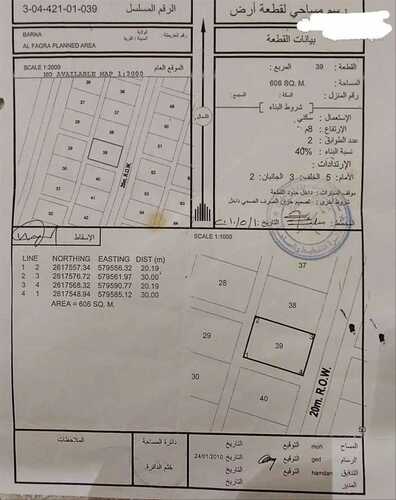 3-04-421-01-039
الرقم المسلسل
رسم مساحي لقطعة أرض
بيانات القطعة
BARKA
AL FAQRA PLANNED AREA
الولاية
المدينة / القرية
رقم الخريطة
SCALE 1:2000
الموقع العام
NO AVAILABLE MAP 1:3000
38
39
20m. R.O.W.
الشمال
القطعة: 39
المربع:
المساحة: 606 SQ. M.
رقم المنزل:
السكة:
المجمع:
شروط البناء
الإستعمال: سكني
الإرتفاع: 8م
عدد الطوابق: 2
نسبة البناء: 40%
الإرتدادات:
الأمام: 5 الخلف: 3 الجانبان: 2
موقف السيارات: داخل حدود القطعة
شروط أخرى: تصميم خزان الصرف الصحي داخل
الإسقاط
LINE NORTHING EASTING DIST (m)
1 2 2617557.34 579556.32 20.19
2 3 2617576.72 579561.97 30.00
3 4 2617568.32 579590.77 20.19
4 1 2617548.94 579585.12 30.00
AREA = 606 SQ. M.
SCALE 1:1000
37
28
38
29
39
30
40
20m. R.O.W.
الملاحظات
دائرة المساحة
ختم الدائرة
المساح
moh
التوقيع
التاريخ
الرسام
ged
التوقيع
التاريخ
24/01/2010
التدقيق
hamdan
التوقيع
التاريخ
المدير
التاريخ